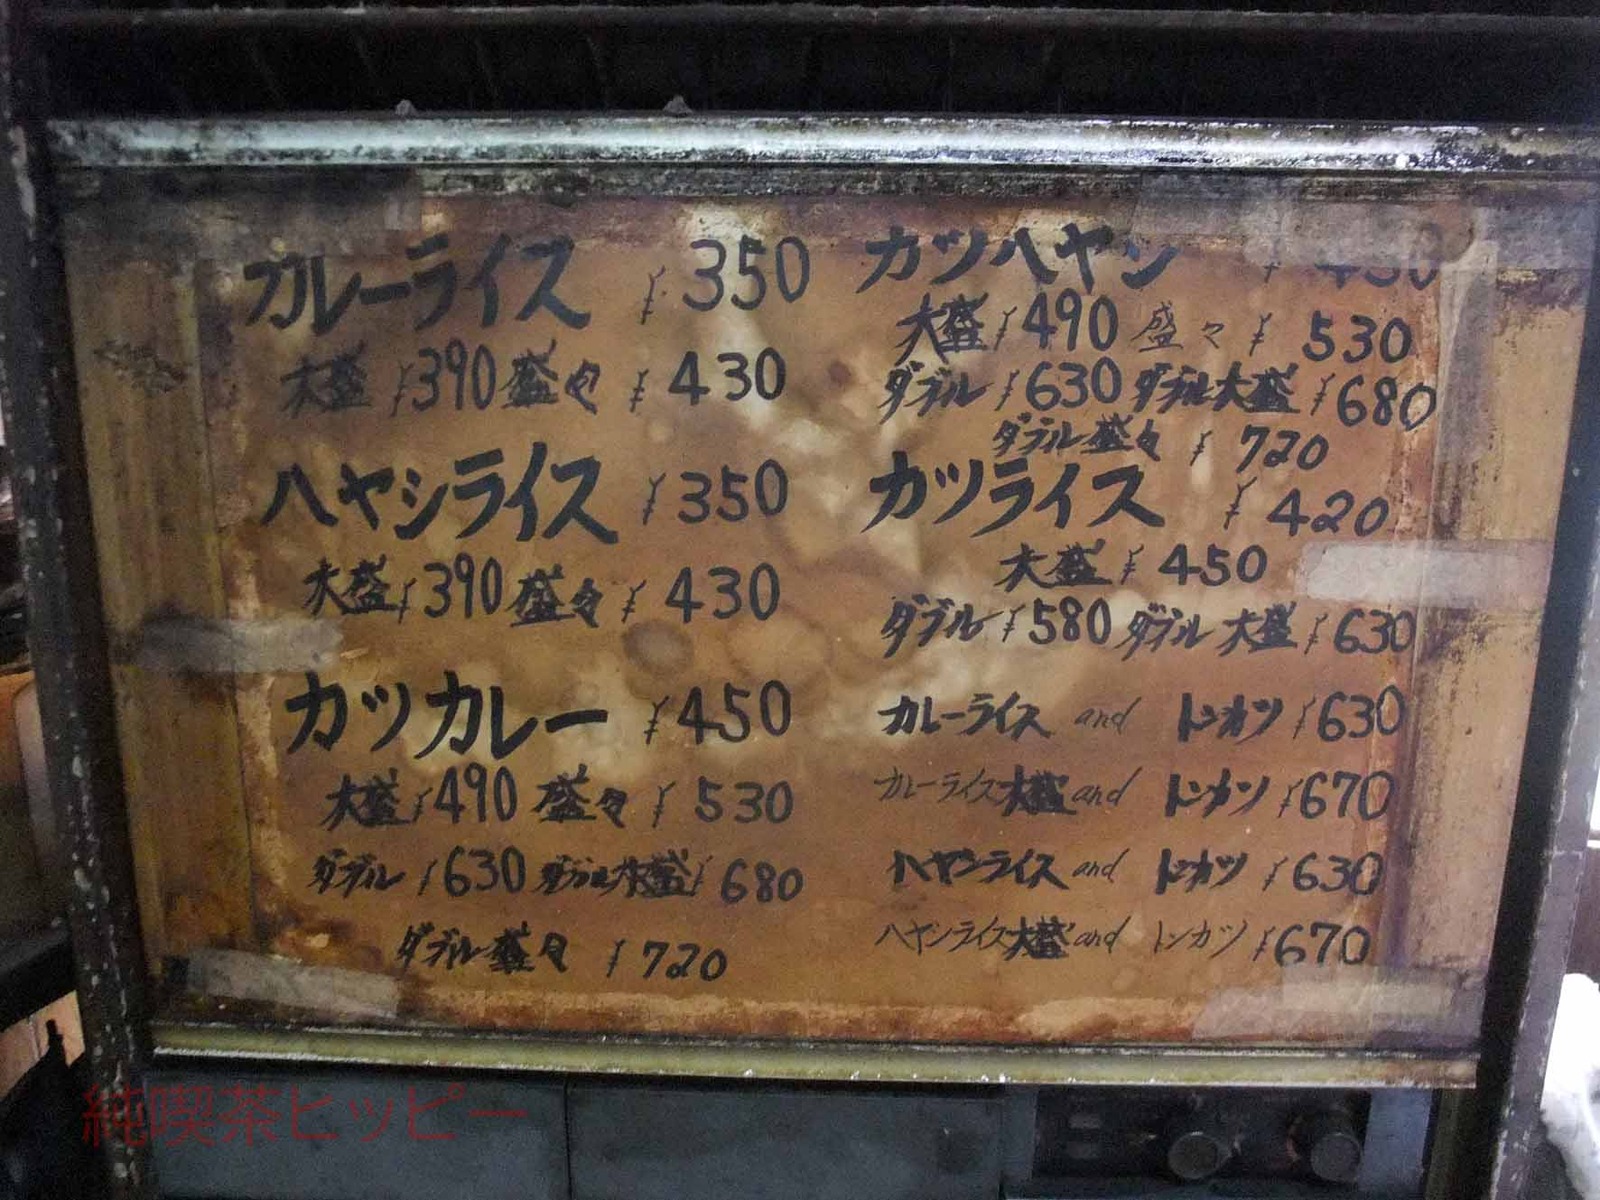 カレーライス ¥350
大盛 ¥390 盛々 ¥430
ハヤシライス ¥350
大盛 ¥390 盛々 ¥430
カツカレー ¥450
大盛 ¥490 盛々 ¥530
ダブル ¥630 ダブル大盛 ¥680
ダブル盛々 ¥720
カツハヤシ ¥450
大盛 ¥490 盛々 ¥530
ダブル ¥630 ダブル大盛 ¥680
ダブル盛々 ¥720
カツライス ¥420
大盛 ¥450
ダブル ¥580 ダブル大盛 ¥630
カレーライス and トンカツ ¥630
カレーライス大盛 and トンカツ ¥670
ハヤシライス and トンカツ ¥630
ハヤシライス大盛 and トンカツ ¥670
純喫茶ヒッピー